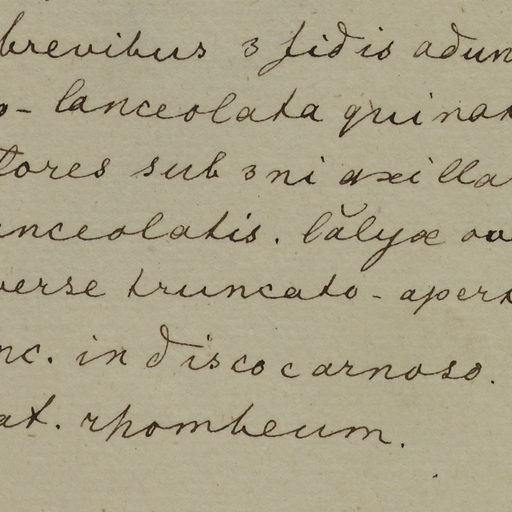 brevibus 3 fidis adun
o-lanceolata quinat
flores sub 3ni axilla
anceolatis. Călyx ov
verse truncato-apert
nc. in disco carnoso.
at. rhombeum.